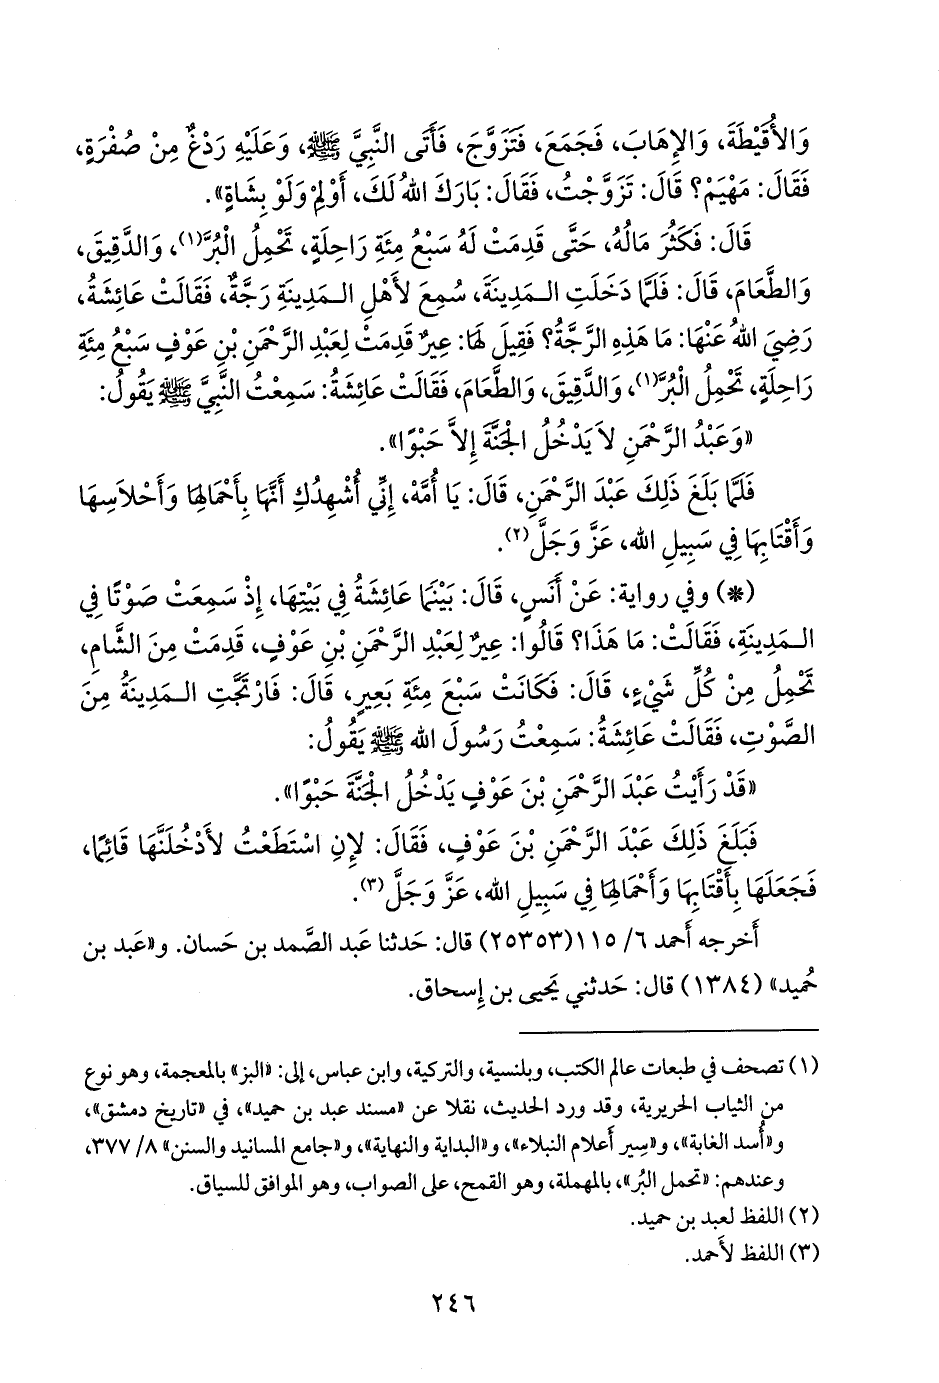 وَالأُقَيْطَةَ، وَالإِهَابَ، فَجَمَعَ، فَتَزَوَّجَ، فَأَتَى النَّبِيَّ ﷺ، وَعَلَيْهِ رَدْغٌ مِنْ صُفْرَةٍ،
فَقَالَ: مَهْيَمْ؟ قَالَ: تَزَوَّجْتُ، فَقَالَ: بَارَكَ اللهُ لَكَ، أَوْلِمْ وَلَوْ بِشَاةٍ».
قَالَ: فَكَثُرَ مَالُهُ، حَتَّى قَدِمَتْ لَهُ سَبْعُ مِئَةِ رَاحِلَةٍ، تَحْمِلُ الْبُرَّ(١)، وَالدَّقِيقَ،
وَالطَّعَامَ، قَالَ: فَلَمَّا دَخَلَتِ الـمَدِينَةَ، سُمِعَ لأَهْلِ الـمَدِينَةِ رَجَّةٌ، فَقَالَتْ عَائِشَةُ،
رَضِيَ اللهُ عَنْهَا: مَا هَذِهِ الرَّجَّةُ؟ فَقِيلَ لَهَا: عِيرٌ قَدِمَتْ لِعَبْدِ الرَّحْمَنِ بْنِ عَوْفٍ سَبْعُ مِئَةِ
رَاحِلَةٍ، تَحْمِلُ الْبُرَّ(١)، وَالدَّقِيقَ، وَالطَّعَامَ، فَقَالَتْ عَائِشَةُ: سَمِعْتُ النَّبِيَّ ﷺ يَقُولُ:
«وَعَبْدُ الرَّحْمَنِ لاَ يَدْخُلُ الْجَنَّةَ إِلاَّ حَبْوًا».
فَلَمَّا بَلَغَ ذَلِكَ عَبْدَ الرَّحْمَنِ، قَالَ: يَا أُمَّهْ، إِنِّي أُشْهِدُكِ أَنَّهَا بِأَحْمَالِهَا وَأَحْلاَسِهَا
وَأَقْتَابِهَا فِي سَبِيلِ الله، عَزَّ وَجَلَّ(٢).
(*) وفي رواية: عَنْ أَنَسٍ، قَالَ: بَيْنَمَا عَائِشَةُ فِي بَيْتِهَا، إِذْ سَمِعَتْ صَوْتًا فِي
الـمَدِينَةِ، فَقَالَتْ: مَا هَذَا؟ قَالُوا: عِيرٌ لِعَبْدِ الرَّحْمَنِ بْنِ عَوْفٍ، قَدِمَتْ مِنَ الشَّامِ،
تَحْمِلُ مِنْ كُلِّ شَيْءٍ، قَالَ: فَكَانَتْ سَبْعَ مِئَةِ بَعِيرٍ، قَالَ: فَارْتَجَّتِ الـمَدِينَةُ مِنَ
الصَّوْتِ، فَقَالَتْ عَائِشَةُ: سَمِعْتُ رَسُولَ الله ﷺ يَقُولُ:
«قَدْ رَأَيْتُ عَبْدَ الرَّحْمَنِ بْنَ عَوْفٍ يَدْخُلُ الْجَنَّةَ حَبْوًا».
فَبَلَغَ ذَلِكَ عَبْدَ الرَّحْمَنِ بْنَ عَوْفٍ، فَقَالَ: لإِنِ اسْتَطَعْتُ لأَدْخُلَنَّهَا قَائِمًا،
فَجَعَلَهَا بِأَقْتَابِهَا وَأَحْمَالِهَا فِي سَبِيلِ الله، عَزَّ وَجَلَّ(٣).
أَخرجه أَحمد ٦/ ١١٥(٢٥٣٥٣) قال: حَدثنا عَبد الصَّمد بن حَسان. و«عَبد بن
حُميد» (١٣٨٤) قال: حَدثني يَحيى بن إِسحاق.
(١) تصحف في طبعات عالم الكتب، وبلنسية، والتركية، وابن عباس، إلى: «البز» بالمعجمة، وهو نوع
من الثياب الحريرية، وقد ورد الحديث، نقلا عن «مسند عبد بن حميد»، في «تاريخ دمشق»،
و«أُسد الغابة»، و«سِير أَعلام النبلاء»، و«البداية والنهاية»، و«جامع المسانيد والسنن» ٨/ ٣٧٧،
وعندهم: «تحمل البُر»، بالمهملة، وهو القمح، على الصواب، وهو الموافق للسياق.
(٢) اللفظ لعبد بن حميد.
(٣) اللفظ لأَحمد.
٢٤٦